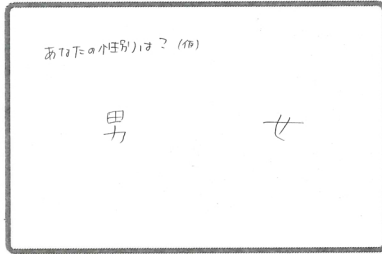 あなたの性別は？(仮)
男 女